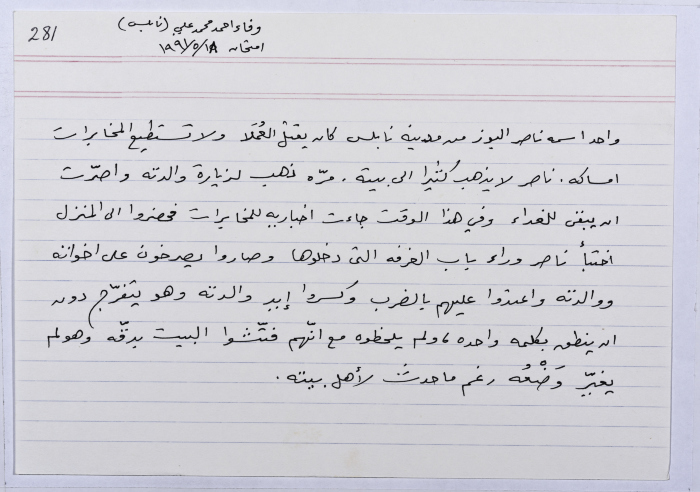 281
وفاء احمد محمد علي (نابلس)
امتحان ١٩٩١/٥/١٨
واحد اسمه ناصر البوز من مدينة نابلس كان يقتل العُمَلا ولا تستطيع المخابرات
امساكه. ناصر لا يذهب كثيرا الى بيته. مرّه ذهب لزيارة والدته واصرّت
ان يبقى للغداء وفي هذا الوقت جاءت اخباريه للمخابرات فحضروا الى المنزل
اختبأ ناصر وراء باب الغرفه التى دخلوها وصاروا يصرخون على اخوانه
ووالدته واعتدوا عليهم بالضرب وكسروا إيد والدته وهو يتفرّج دون
ان ينطق بكلمه واحده، ولم يلحظوه مع انّهم فتّشوا البيت بدقّه وهو لم
يغيّر وَضْعُه رغم ما حدث لأهل بيته.